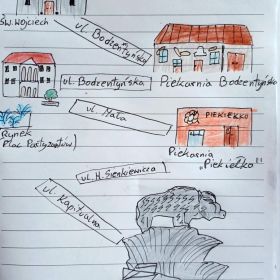 Św. Wojciech
ul. Bodzentyńska
ul. Bodzentyńska
Piekarnia Bodzentyńska
ul. Mała
PIEKIEŁKO
Rynek
Plac Partyzantów
Piekarnia
„Piekiełko"
ul. H. Sienkiewicza
ul. Kapitulna